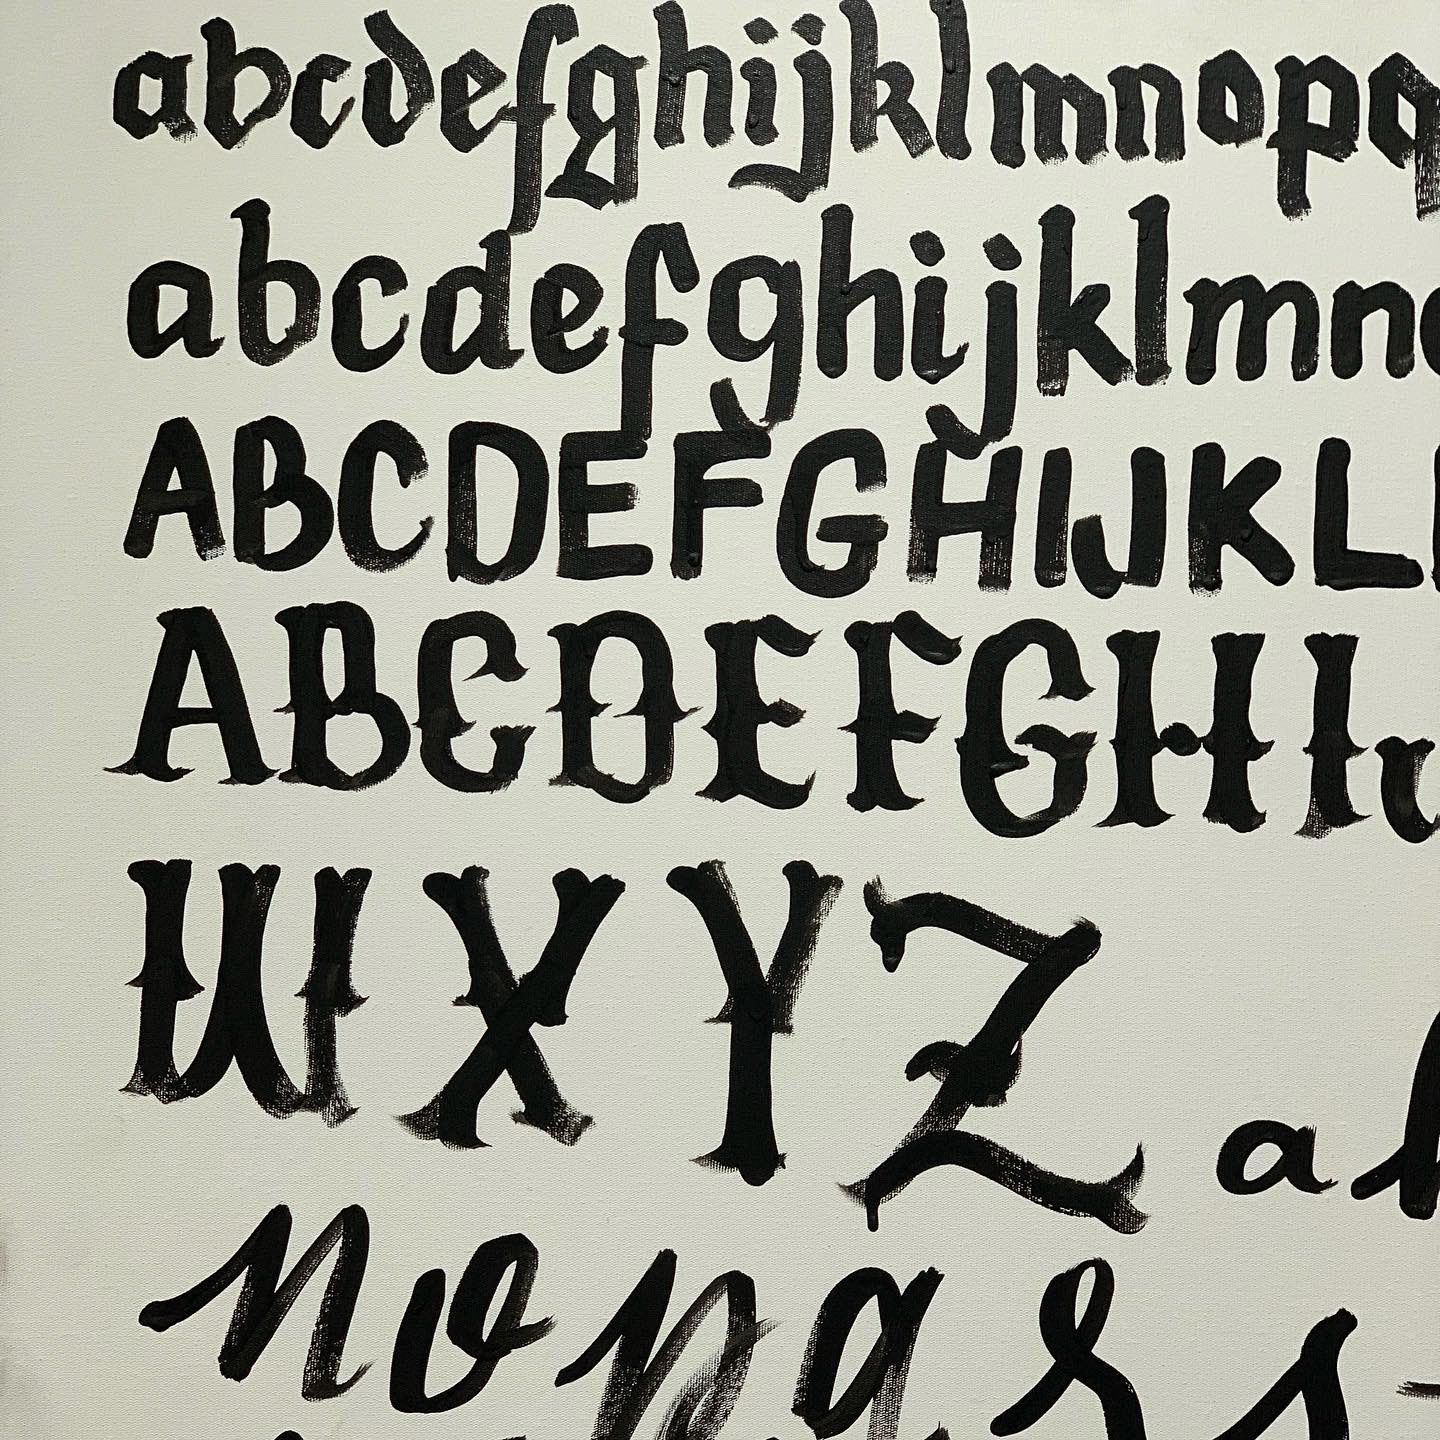 abcdefghijklmnopq
abcdefghijklmn
ABCDEFGHIJKL
ABCDEFGHI
WXYZ a
nopqrs